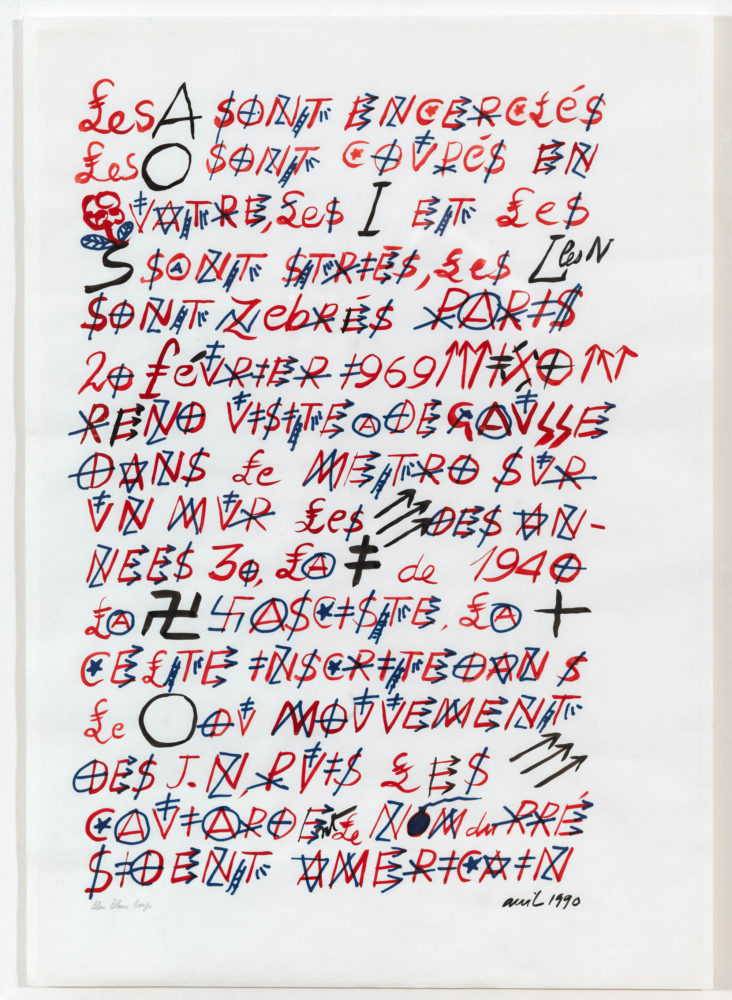 Les A SONT ENCERCLéS
Les O SONT COVPéS EN
QVATRE, LeS I ET LeS
S SONT STRIÉS, LeS L les N
SONT ZebRÉS PARIS
20 FéVRIER 1969 ↑↑↑ ‡XO ↑↑↑
REND VISITE A DE GAVϟϟE
DANS Le METRO SVR
VN MVR LeS ↗↗↗ DES AN-
NEES 30, LA ‡ de 1940
LA 卍 卐ASCISTE, LA +
CELTE INSCRITE DANS
Le O DV MOVVEMENT
DES J.N, PVIS LES ↗↗↗
CAVIARDENT Le NOM du PRÉ
SIDENT AMERICAIN
Bleu Blanc Rouge avril 1990